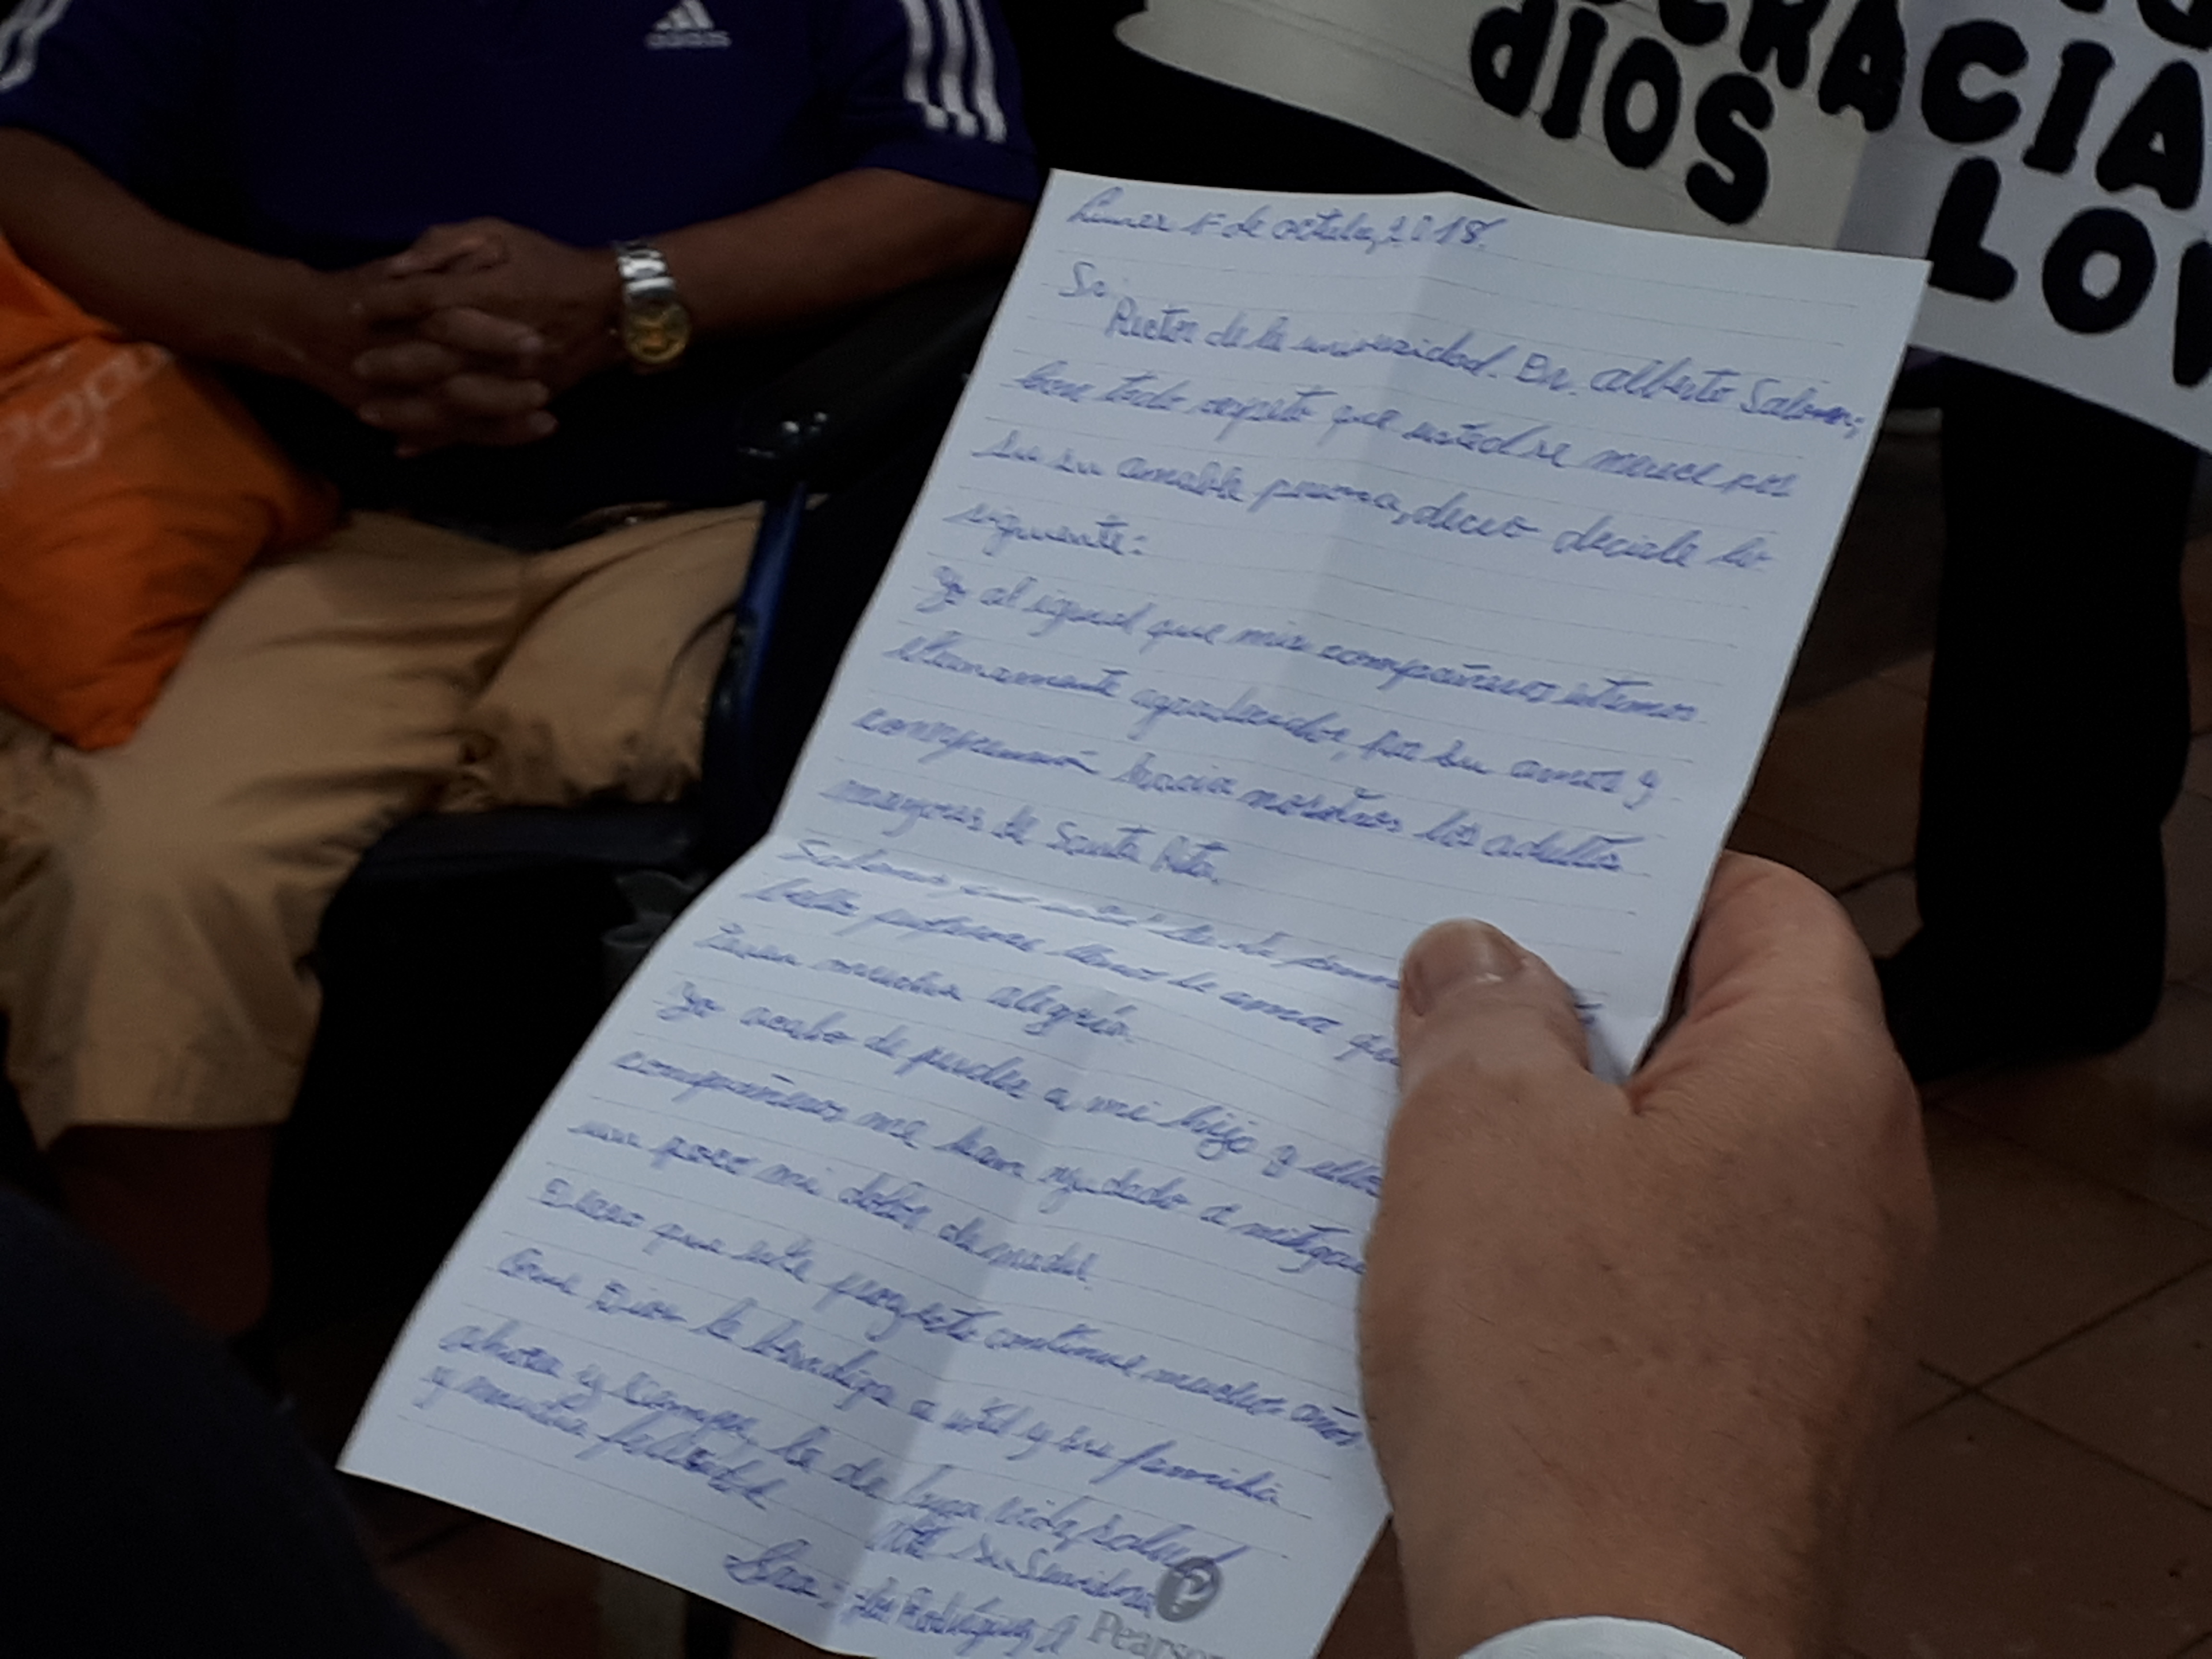 adidas
CRACIA
dIOS
LOV
Lunes 1º de octubre, 2018.
Sr.
Rector de la universidad. Dr. alberto Salom;
con todo respeto que usted se merece por
ser su amable persona, deceo decirle lo
siguiente:
Yo al igual que mis compañeros estamos
altamente agradecidos, por su amor y
comprensión hacia nosotros los adultos
mayores de Santa Rita.
de amor
Traen mucha alegría.
Yo acabo de perder a mi hijo y ellos
compañeros me han ayudado a mitigar
un poco mi dolor de madre
Deceo que este proyecto continue muchos años
Que Dios le bendiga a usted y su familia
ahora y siempre, le de larga vida, salud
y mucha felicidad
Att Su Servidora
Rodríguez
Pearson